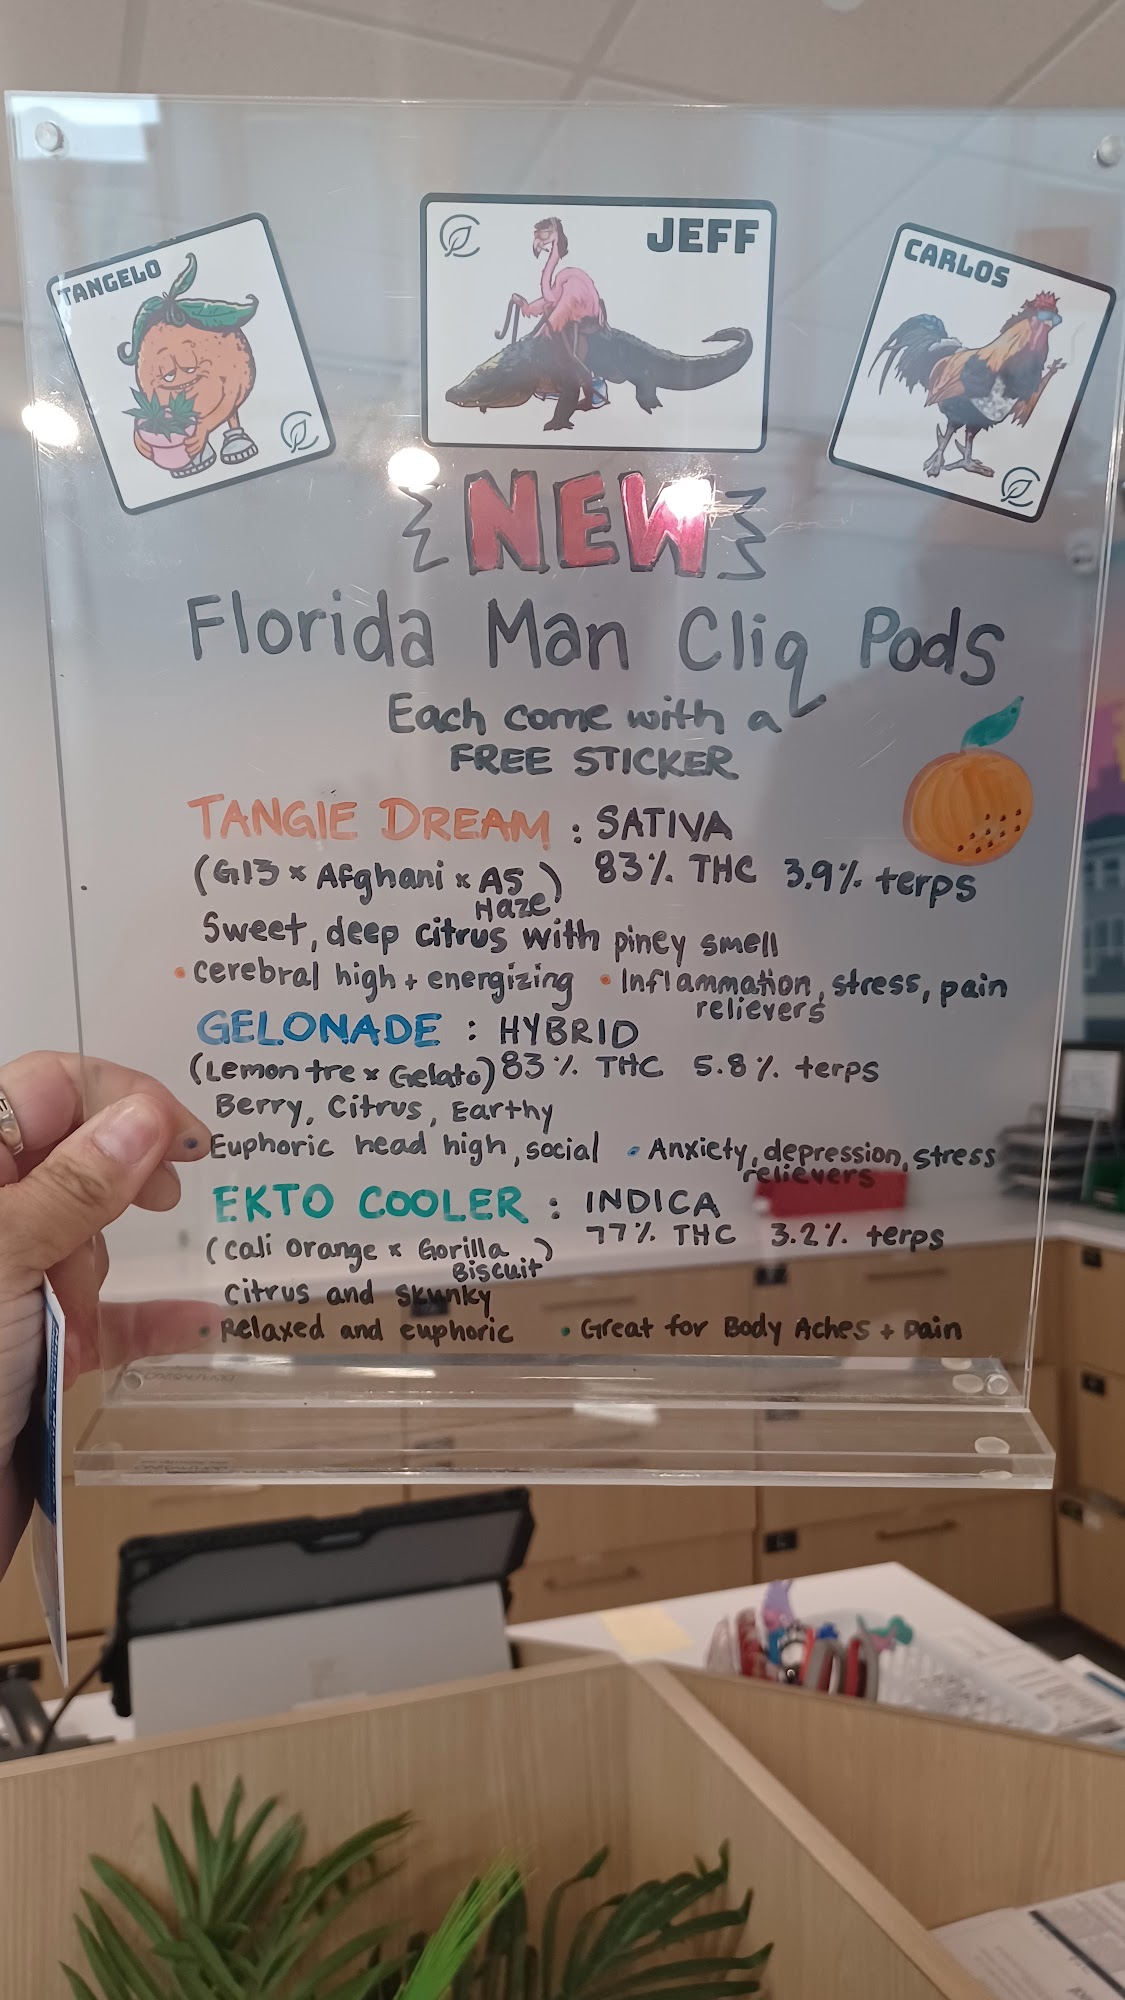 TANGELO
JEFF
CARLOS
NEW
Florida Man Cliq Pods
Each come with a
FREE STICKER
TANGIE DREAM : SATIVA
(G13 x Afghani x A5 Haze) 83% THC 3.9% terps
Sweet, deep citrus with piney smell
• cerebral high + energizing • Inflammation, stress, pain
relievers
GELONADE : HYBRID
(Lemon tre x Gelato) 83% THC 5.8% terps
Berry, Citrus, Earthy
• Euphoric head high, social • Anxiety, depression, stress
relievers
EKTO COOLER : INDICA
(Cali Orange x Gorilla Biscuit) 77% THC 3.2% terps
Citrus and Skunky
• Relaxed and euphoric • Great for Body Aches + Pain